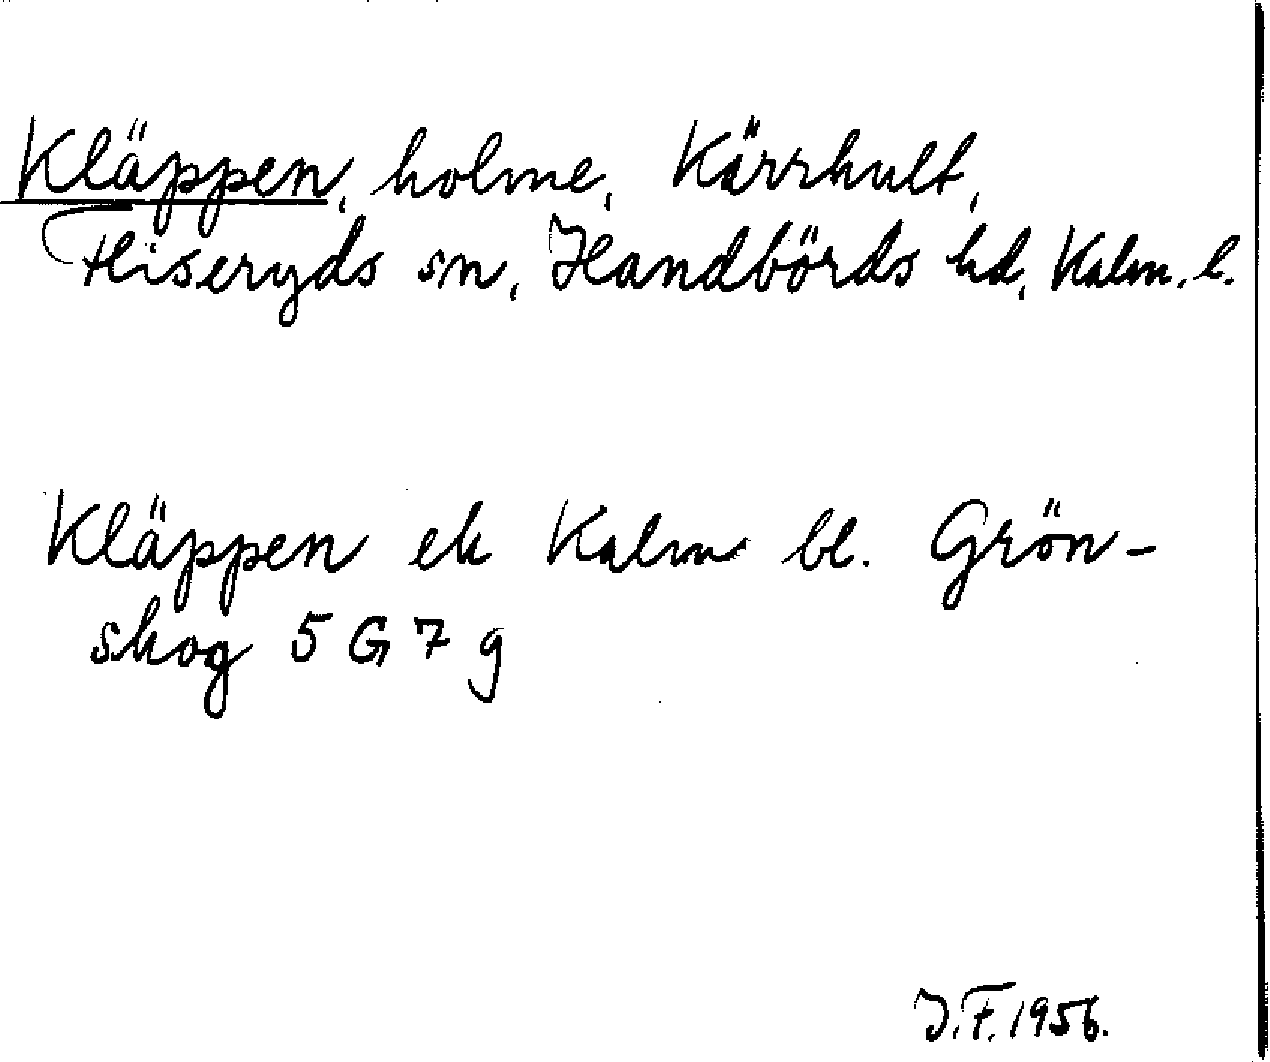 Kläppen, holme, Kärrhult,
Fliseryds sn, Handbörds hd, Kalm. l.
Kläppen ek Kalm bl. Grön-
skog 5 G 7 g
J.F. 1956.